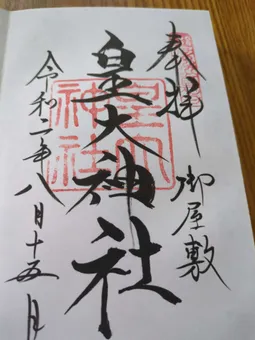 奉拝
御屋敷
皇大神社
皇大
神社
令和一年八月十五日